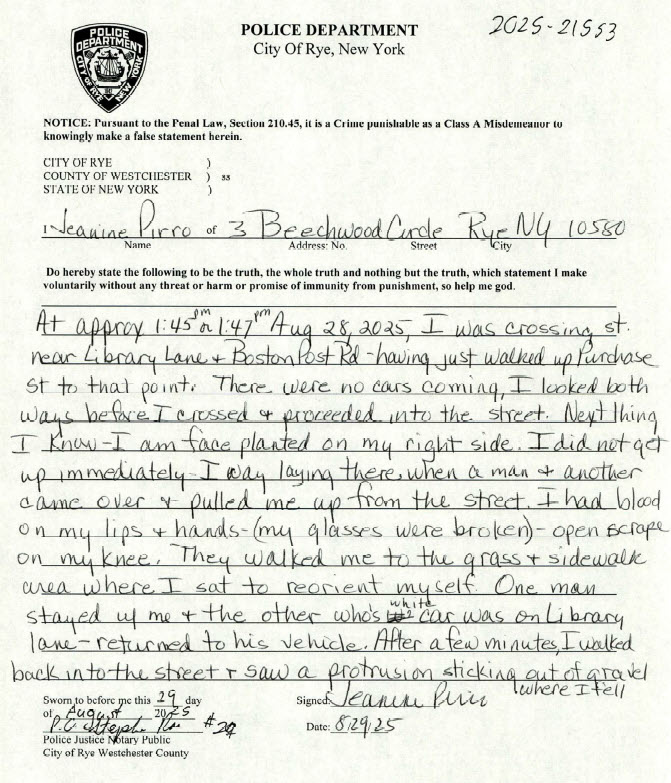 2025-21553
POLICE DEPARTMENT
City Of Rye, New York
POLICE
DEPARTMENT
CITY OF RYE
NEW YORK
NOTICE: Pursuant to the Penal Law, Section 210.45, it is a Crime punishable as a Class A Misdemeanor to
knowingly make a false statement herein.
CITY OF RYE )
COUNTY OF WESTCHESTER ) ss
STATE OF NEW YORK )
I Jeanine Pirro of 3 Beechwood Circle Rye NY 10580
Name Address: No. Street City
Do hereby state the following to be the truth, the whole truth and nothing but the truth, which statement I make
voluntarily without any threat or harm or promise of immunity from punishment, so help me god.
At approx 1:45pm or 1:47pm Aug 28, 2025, I was crossing st.
near Library Lane & Boston Post Rd - having just walked up Purchase
St to that point. There were no cars coming, I looked both
ways before I crossed & proceeded into the street. Next thing
I know - I am face planted on my right side. I did not get
up immediately - I way laying there, when a man & another
came over & pulled me up from the street. I had blood
on my lips & hands - (my glasses were broken) - open scrape
on my knee. They walked me to the grass & sidewalk
area where I sat to reorient myself. One man
stayed w/ me & the other who's white car was on Library
lane - returned to his vehicle. After a few minutes, I walked
back into the street & saw a protrusion sticking out of gravel
where I fell
Sworn to before me this 29 day
of August 2025
P.O. #29
Police Justice Notary Public
City of Rye Westchester County
Signed: Jeanine Pirro
Date: 8/29/25